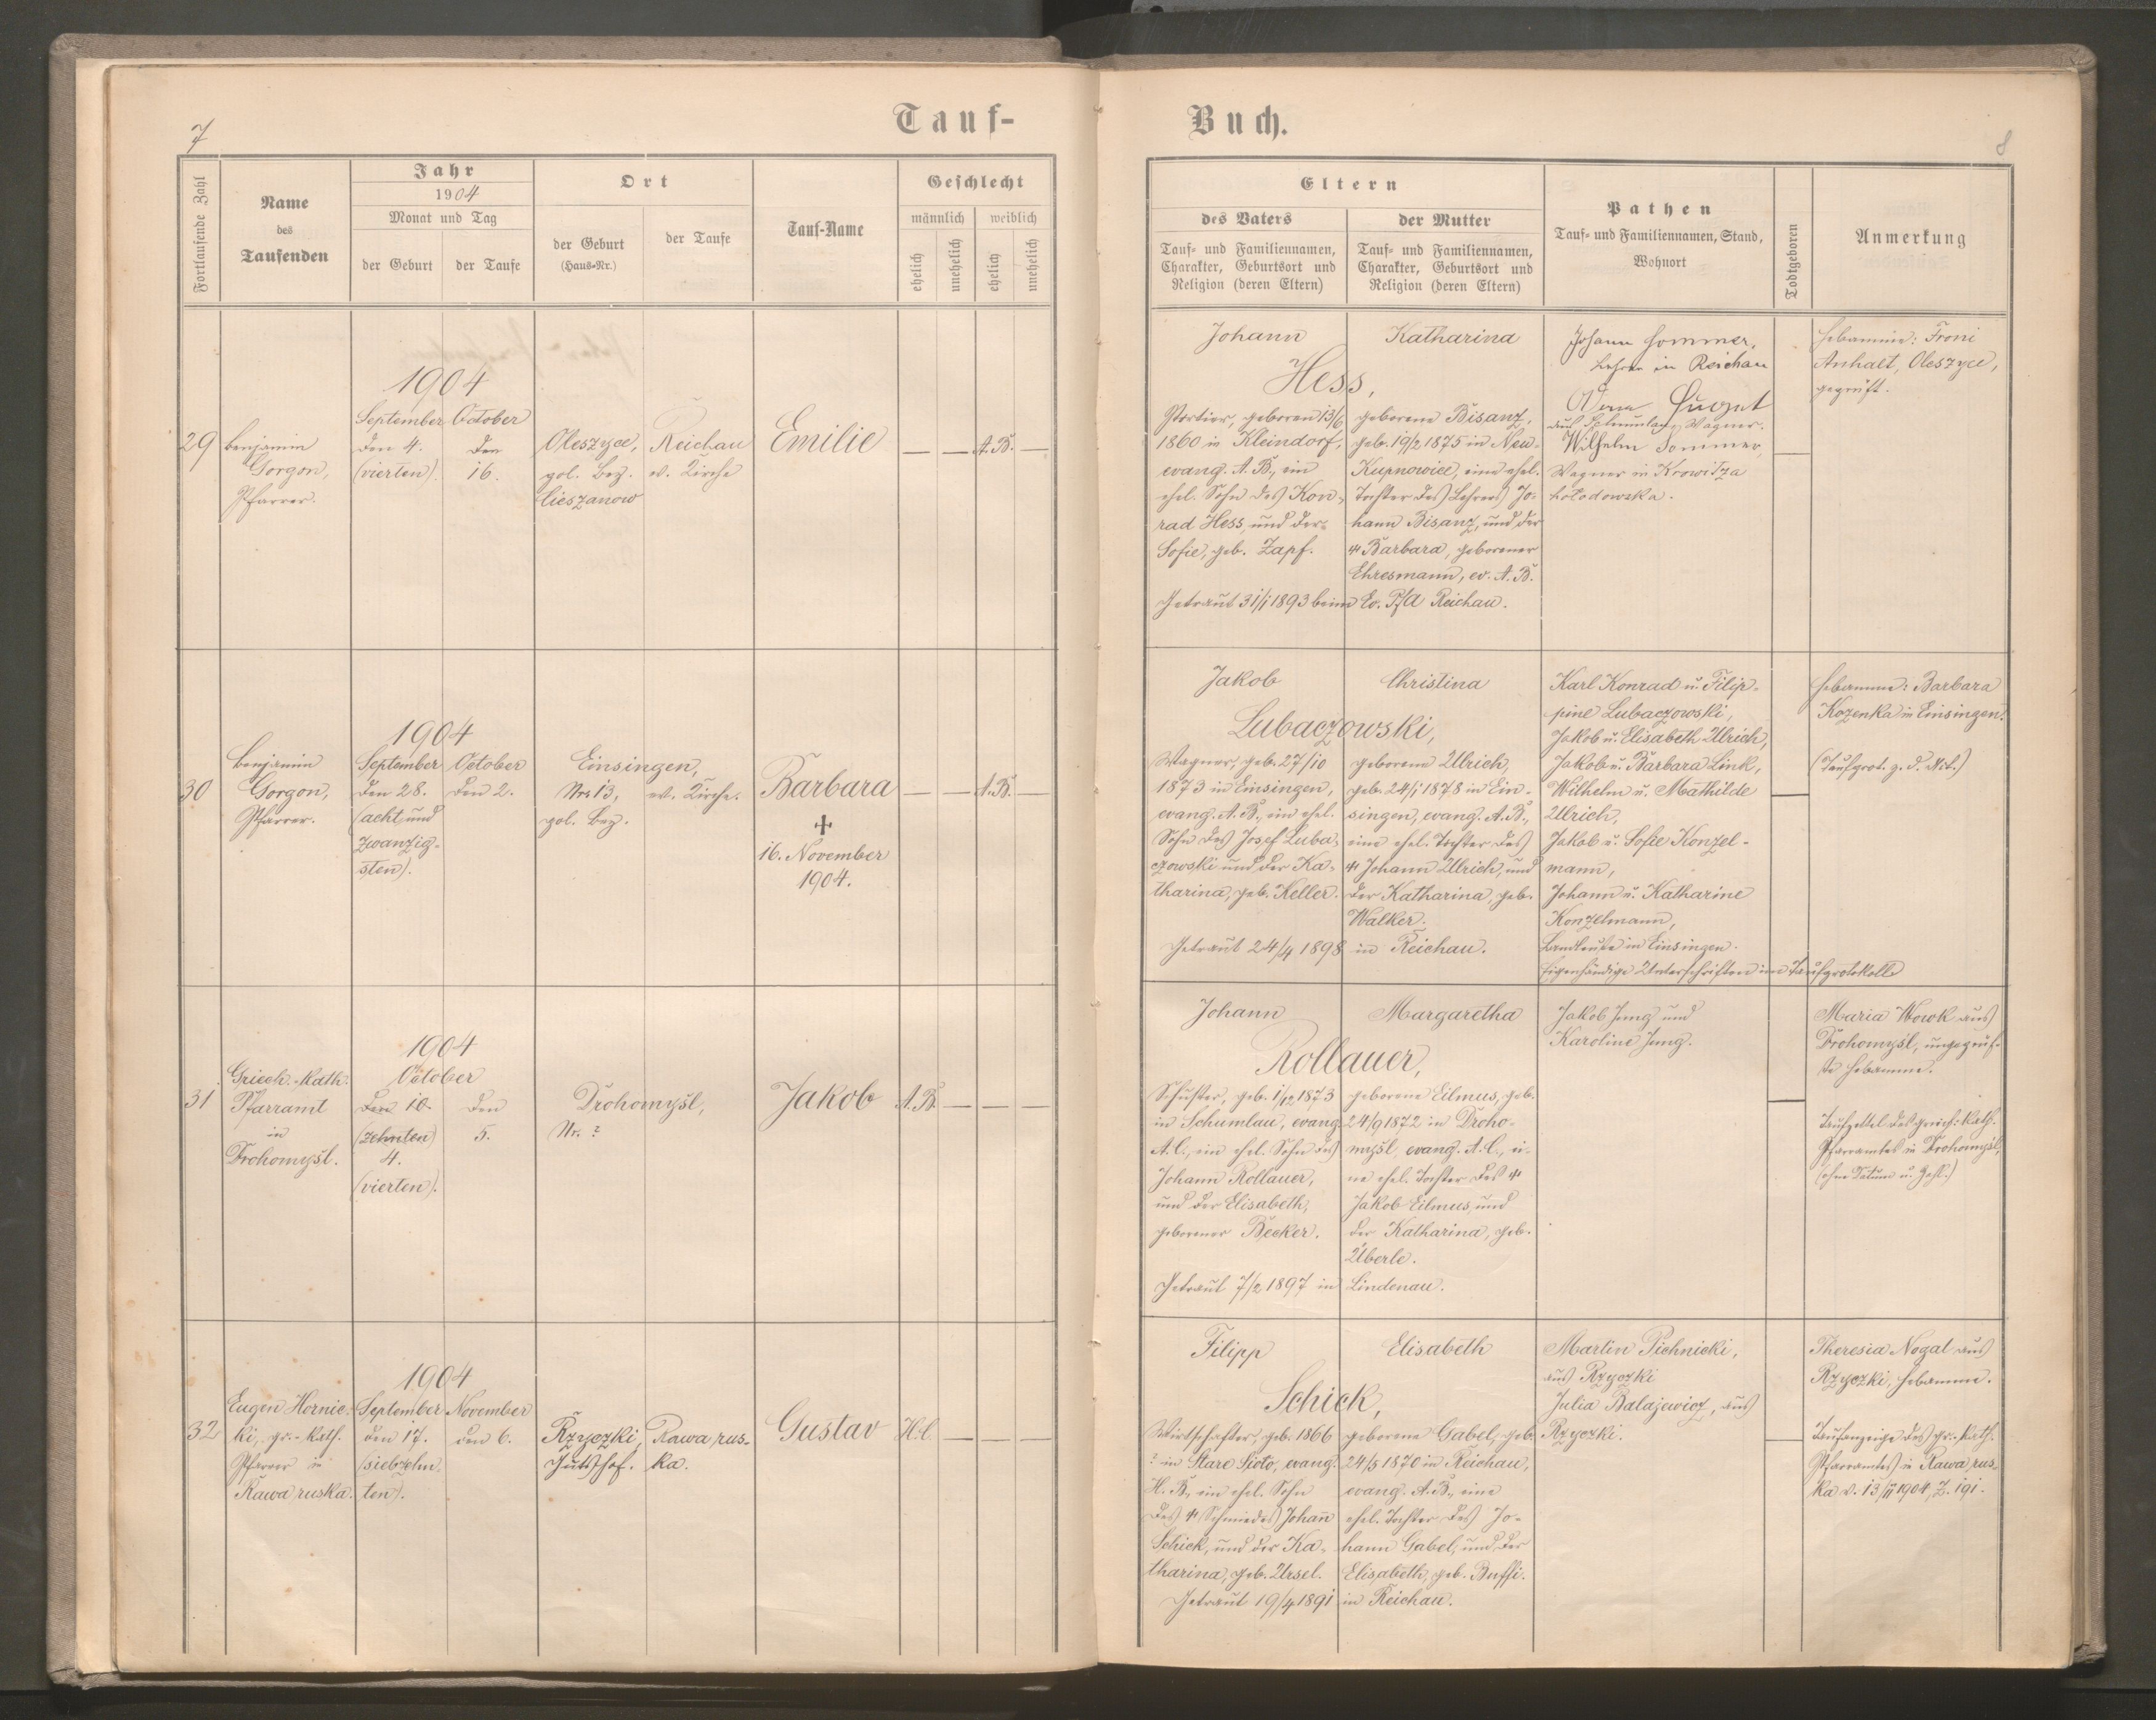 7
Tauf-
Buch.
8
Fortlaufende Zahl
Name
des
Taufenden
Jahr
1904
Monat und Tag
der Geburt
der Taufe
Ort
der Geburt
(Haus-Nr.)
der Taufe
Tauf-Name
Geschlecht
männlich
weiblich
ehelich
unehelich
ehelich
unehelich
Eltern
des Vaters
Tauf- und Familiennamen,
Charakter, Geburtsort und
Religion (deren Eltern)
der Mutter
Tauf- und Familiennamen,
Charakter, Geburtsort und
Religion (deren Eltern)
Pathen
Tauf- und Familiennamen, Stand,
Wohnort
Todtgeboren
Anmerkung
29
Benjamin
Gorgon,
Pfarrer.
1904
September
den 4.
(vierten).
October
den
16.
Oleszyce,
pol. Bez.
Cieszanow
Reichau
ev. Kirche
Emilie
— — A.B. —
Johann
Katharina
Hess,
Portier, geboren 13/6
1860 in Kleindorf,
evang. A. B., ein
ehel. Sohn des Kon-
rad Hess, und der
Sofie, geb. Zapf.
geborene Bisanz,
geb. 19/2 1875 in Neu-
Kupnowice, eine ehel.
Tochter des Lehrers Jo-
hann Bisanz, und der
Barbara, geborener
Ehresmann, ev. A. B.
Getraut 31/1 1893 beim Ev. PfA Reichau.
Johann Sommer,
Lehrer in Reichau
Wagner.
Wilhelm Sommer,
Wagner in Krowitza
hołodowska.
—
Hebamme: Froni
Anhalt, Oleszyce,
geprüft.
30
Benjamin
Gorgon,
Pfarrer.
1904
September
den 28.
(acht und
zwanzig-
sten).
October
den 2.
Einsingen,
Nro 13,
pol. Bez.
ev. Kirche.
Barbara
✝
16. November
1904.
— — A.B. —
Jakob
Christina
Lubaczowski,
Wagner, geb. 27/10
1873 in Einsingen,
evang. A. B., ein ehel.
Sohn des Josef Luba-
czowski und der Ka-
tharina, geb. Keller.
geborene Ulrich,
geb. 24/1 1878 in Ein-
singen, evang. A. B.,
eine ehel. Tochter des
Johann Ulrich, und
der Katharina, geb.
Walker.
Getraut 24/4 1898 in Reichau.
Karl Konrad u. Filip-
pine Lubaczowski,
Jakob u. Elisabeth Ulrich,
Jakob u. Barbara Link,
Wilhelm u. Mathilde
Ulrich,
Jakob u. Sofie Konzel-
mann,
Johann u. Katharine
Konzelmann,
Landleute in Einsingen.
Eigenhändige Unterschriften im Taufprotokolle
—
Hebamme: Barbara
Kozenka in Einsingen.
(Taufprot. z. d. Akt.)
31
Griech.-kath.
Pfarramt
in
Drohomysl.
1904
October
den 10.
(zehnten)
4.
(vierten).
den
5.
Drohomysl,
Nr. ?
Jakob
A.B. — — —
Johann
Margaretha
Rollauer,
Schuster, geb. 1/12 1873
in Schumlau, evang.
A. C., ein ehel. Sohn des
Johann Rollauer,
und der Elisabeth,
geborener Becker.
geborene Eilmus, geb.
24/9 1872 in Droho-
mysl, evang. A. C., ei-
ne ehel. Tochter des
Jakob Eilmus, und
der Katharina, geb.
Überle.
Getraut 7/2 1897 in Lindenau.
Jakob Jung und
Karoline Jung.
—
Maria Wowk aus
Drohomysl, ungeprüf-
te Hebamme.
Taufzettel des griech.-kath.
Pfarramtes in Drohomysl,
(ohne Datum u. Zahl.)
32
Eugen Hornic-
ki, gr.-kath.
Pfarrer in
Rawa ruska.
1904
September
den 17.
(siebzehn-
ten).
November
den 6.
Rzyczki,
Gutshof.
Rawa rus-
ka.
Gustav
H.C. — — —
Filipp
Elisabeth
Schick,
Wirtschafter, geb. 1866
? in Stare Sioło, evang.
H. B., ein ehel. Sohn
des Schmiedes Johann
Schick, und der Ka-
tharina, geb. Ursel.
geborene Gabel, geb.
24/5 1870 in Reichau,
evang. A. B., eine
ehel. Tochter des Jo-
hann Gabel, und der
Elisabeth, geb. Buffi.
Getraut 19/4 1891 in Reichau.
Martin Pichnicki,
aus Rzyczki
Julia Balajewicz, aus
Rzyczki.
—
Theresia Nogal aus
Rzyczki, Hebamme.
Taufanzeige des gr.-kath.
Pfarramtes in Rawa rus-
ka v. 13/11 1904, Z. 191.